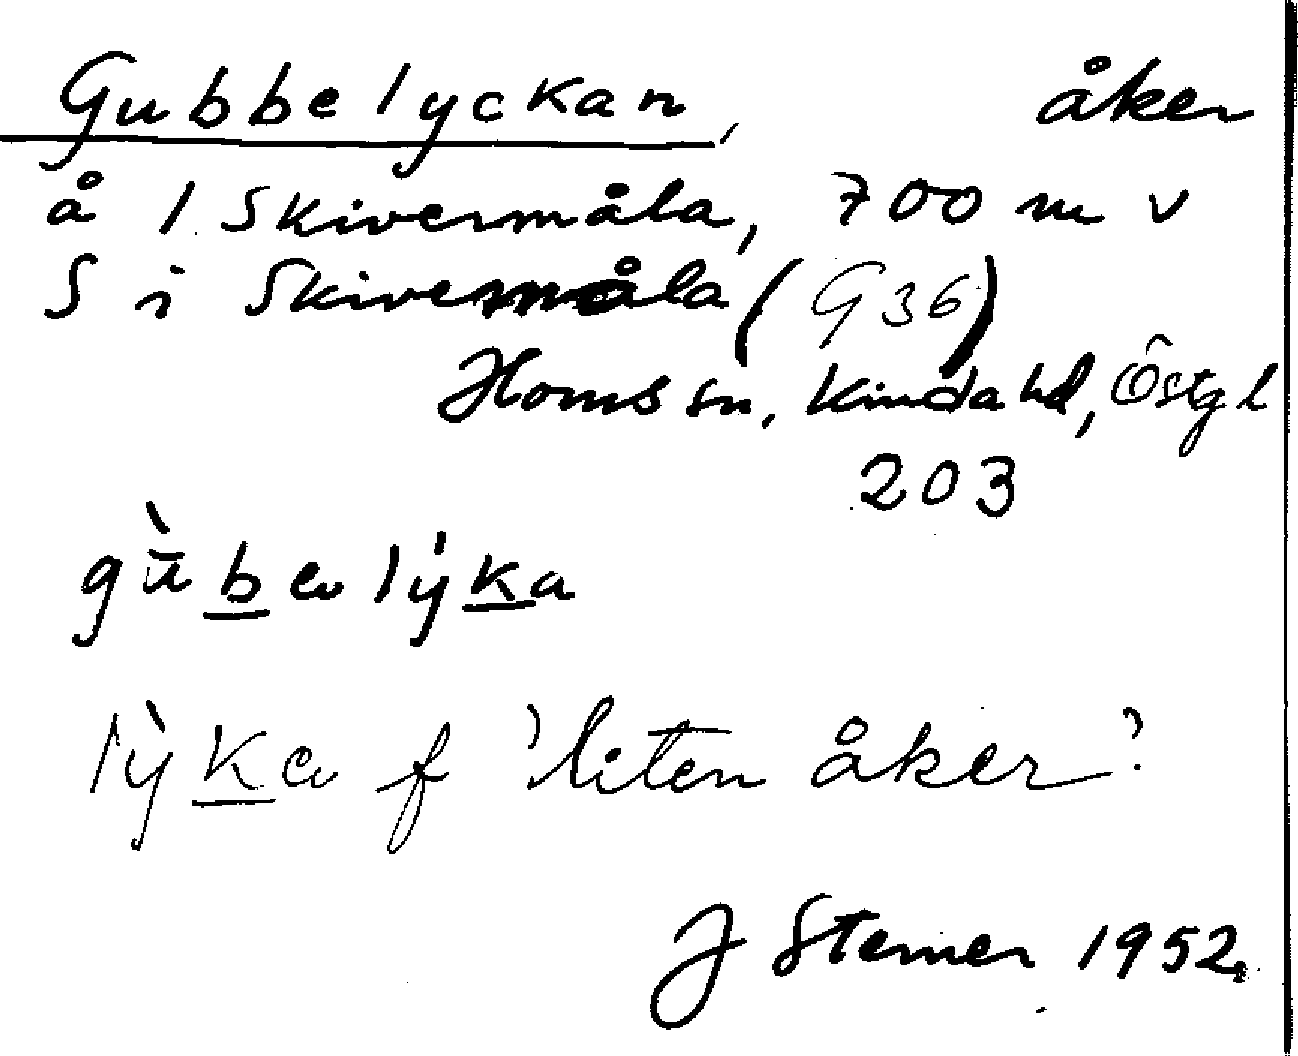 Gubbelyckan, åker
å 1 Skivermåla, 700 m v
S i Skivermåla (G36)
Horns sn, Kinda hd, Östgl
203
gù̄balýka
lỳka f 'liten åker'.
J Sterner 1952.